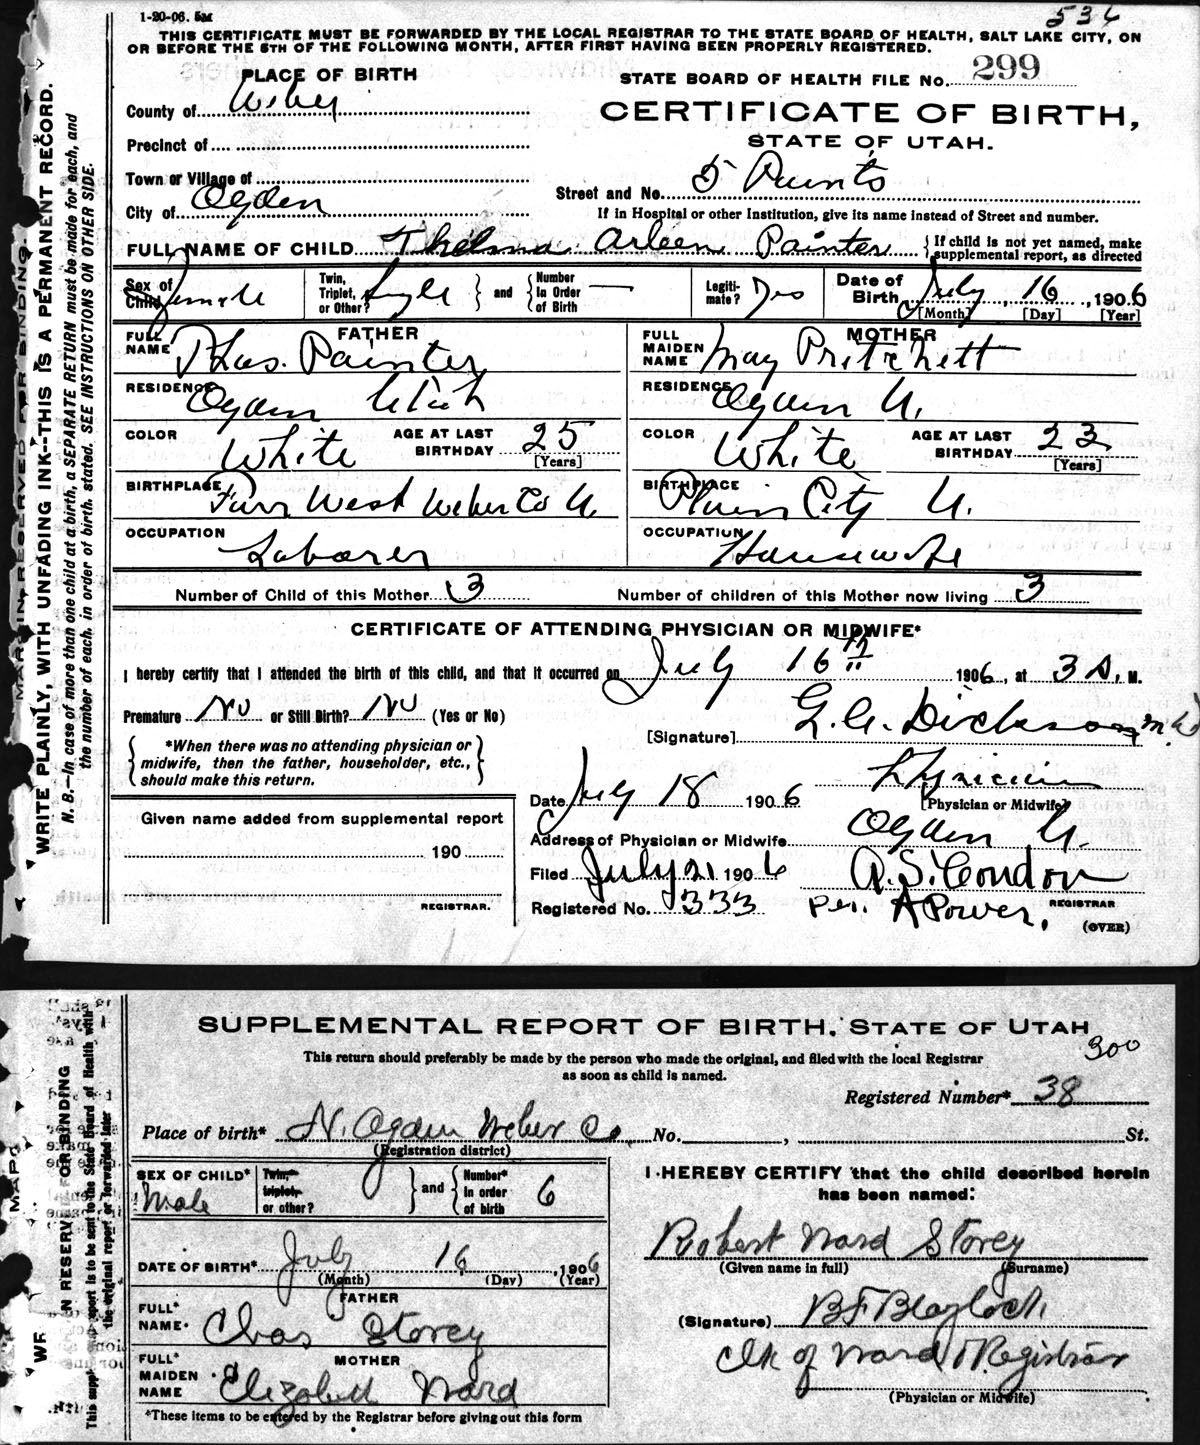 1-20-06. 5M
536
THIS CERTIFICATE MUST BE FORWARDED BY THE LOCAL REGISTRAR TO THE STATE BOARD OF HEALTH, SALT LAKE CITY, ON
OR BEFORE THE 5TH OF THE FOLLOWING MONTH, AFTER FIRST HAVING BEEN PROPERLY REGISTERED.
MARGIN RESERVED FOR BINDING.
WRITE PLAINLY, WITH UNFADING INK--THIS IS A PERMANENT RECORD.
N. B.—In case of more than one child at a birth, a SEPARATE RETURN must be made for each, and
the number of each, in order of birth, stated. SEE INSTRUCTIONS ON OTHER SIDE.
PLACE OF BIRTH
STATE BOARD OF HEALTH FILE No. 299
County of Weber
CERTIFICATE OF BIRTH,
Precinct of
STATE OF UTAH.
Town or Village of
Street and No. 5 Points
City of Ogden
If in Hospital or other Institution, give its name instead of Street and number.
FULL NAME OF CHILD Thelma Arleen Painter
If child is not yet named, make
supplemental report, as directed
Sex of Child Female
Twin, Triplet, or Other? Single and Number In Order of Birth —
Legitimate? Yes
Date of Birth July 16, 1906
[Month] [Day] [Year]
FATHER
FULL NAME Thos. Painter
RESIDENCE Ogden Utah
COLOR White AGE AT LAST BIRTHDAY 25
[Years]
BIRTHPLACE Farr West Weber Co U.
OCCUPATION Laborer
MOTHER
FULL MAIDEN NAME May Pritchett
RESIDENCE Ogden U.
COLOR White AGE AT LAST BIRTHDAY 23
[Years]
BIRTHPLACE Plain City U.
OCCUPATION Housewife
Number of Child of this Mother 3 Number of children of this Mother now living 3
CERTIFICATE OF ATTENDING PHYSICIAN OR MIDWIFE*
I hereby certify that I attended the birth of this child, and that it occurred on July 16th 1906, at 3 A. M.
Premature No or Still Birth? No (Yes or No)
[Signature] Dickson M.D.
*When there was no attending physician or
midwife, then the father, householder, etc.,
should make this return.
Physician
Date July 18 1906 [Physician or Midwife]
Given name added from supplemental report
Address of Physician or Midwife Ogden U.
190
Filed July 21 1906 A.S. Condon
REGISTRAR.
Registered No. 333 per. A Power. REGISTRAR
(OVER)
SUPPLEMENTAL REPORT OF BIRTH, STATE OF UTAH
300
This return should preferably be made by the person who made the original, and filed with the local Registrar
as soon as child is named.
Registered Number* 38
Place of birth* N. Ogden Weber Co. No. , St.
(Registration district)
SEX OF CHILD* Male
Twin, triplet, or other? and Number* in order of birth 6
DATE OF BIRTH* July 16, 1906
(Month) (Day) (Year)
FATHER
FULL* NAME Chas Storey
MOTHER
FULL* MAIDEN NAME Elizabeth Ward
*These items to be entered by the Registrar before giving out this form
I HEREBY CERTIFY that the child described herein
has been named:
Robert Ward Storey
(Given name in full) (Surname)
(Signature) B F Blaylock
Clk of Ward & Registrar
(Physician or Midwife)